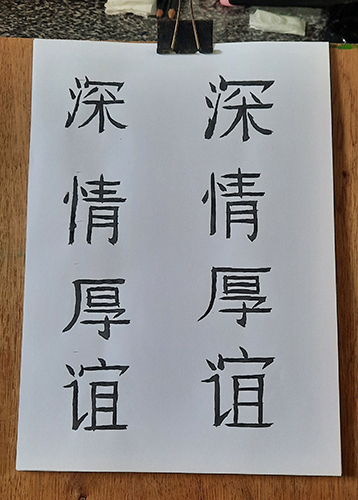 深情厚谊
深情厚谊